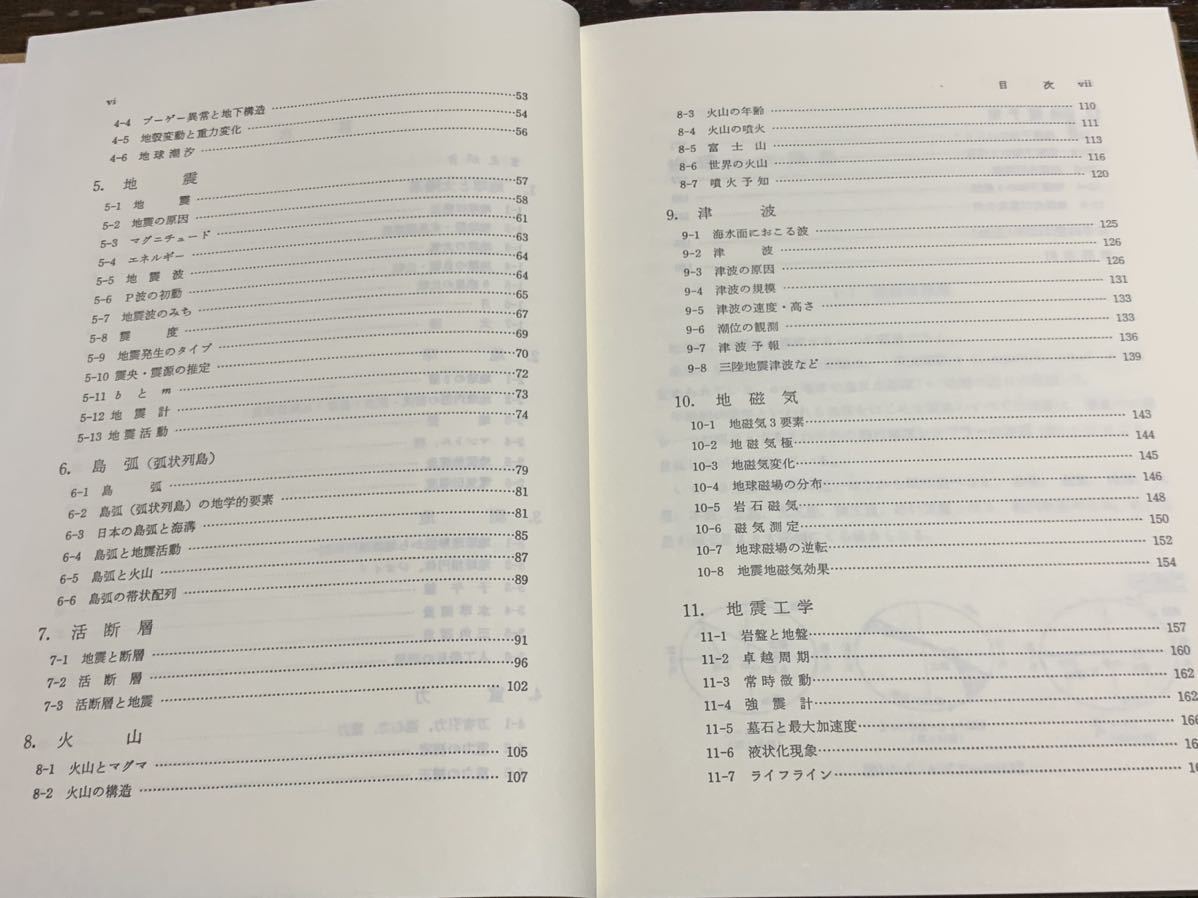 vi
4-4 ブーゲー異常と地下構造……53
4-5 地殻変動と重力変化……54
4-6 地球潮汐……56
5. 地震
5-1 地震……57
5-2 地震の原因……58
5-3 マグニチュード……61
5-4 エネルギー……63
5-5 地震波……64
5-6 P波の初動……64
5-7 地震波のみち……65
5-8 震度……67
5-9 地震発生のタイプ……69
5-10 震央・震源の推定……70
5-11 bとm……72
5-12 地震計……73
5-13 地震活動……74
6. 島弧(弧状列島)
6-1 島弧……79
6-2 島弧(弧状列島)の地学的要素……81
6-3 日本の島弧と海溝……81
6-4 島弧と地震活動……85
6-5 島弧と火山……87
6-6 島弧の帯状配列……89
7. 活断層
7-1 地震と断層……91
7-2 活断層……96
7-3 活断層と地震……102
8. 火山
8-1 火山とマグマ……105
8-2 火山の構造……107
目次 vii
8-3 火山の年齢……110
8-4 火山の噴火……111
8-5 富士山……113
8-6 世界の火山……116
8-7 噴火予知……120
9. 津波
9-1 海水面におこる波……125
9-2 津波……126
9-3 津波の原因……126
9-4 津波の規模……131
9-5 津波の速度・高さ……133
9-6 潮位の観測……133
9-7 津波予報……136
9-8 三陸地震津波など……139
10. 地磁気
10-1 地磁気3要素……143
10-2 地磁気極……144
10-3 地磁気変化……145
10-4 地球磁場の分布……146
10-5 岩石磁気……148
10-6 磁気測定……150
10-7 地球磁場の逆転……152
10-8 地震地磁気効果……154
11. 地震工学
11-1 岩盤と地盤……157
11-2 卓越周期……160
11-3 常時微動……162
11-4 強震計……162
11-5 墓石と最大加速度……166
11-6 液状化現象……
11-7 ライフライン……